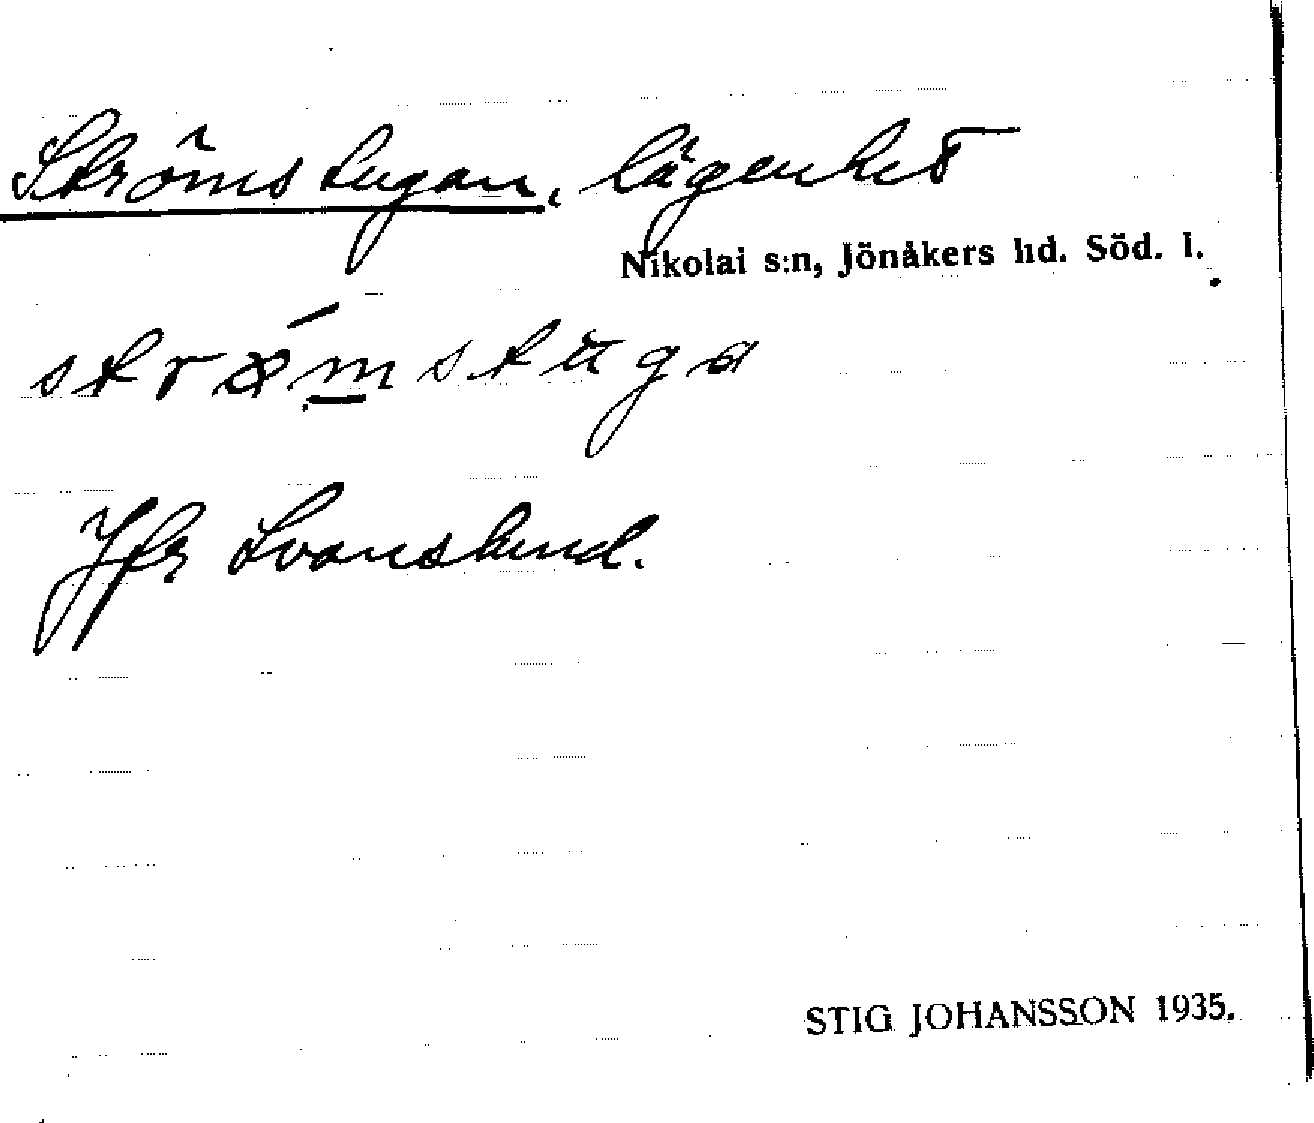 Strömstugan, lägenhet
Nikolai s:n, Jönåkers hd. Söd. l.
Jfr Svanslund.
STIG JOHANSSON 1935.